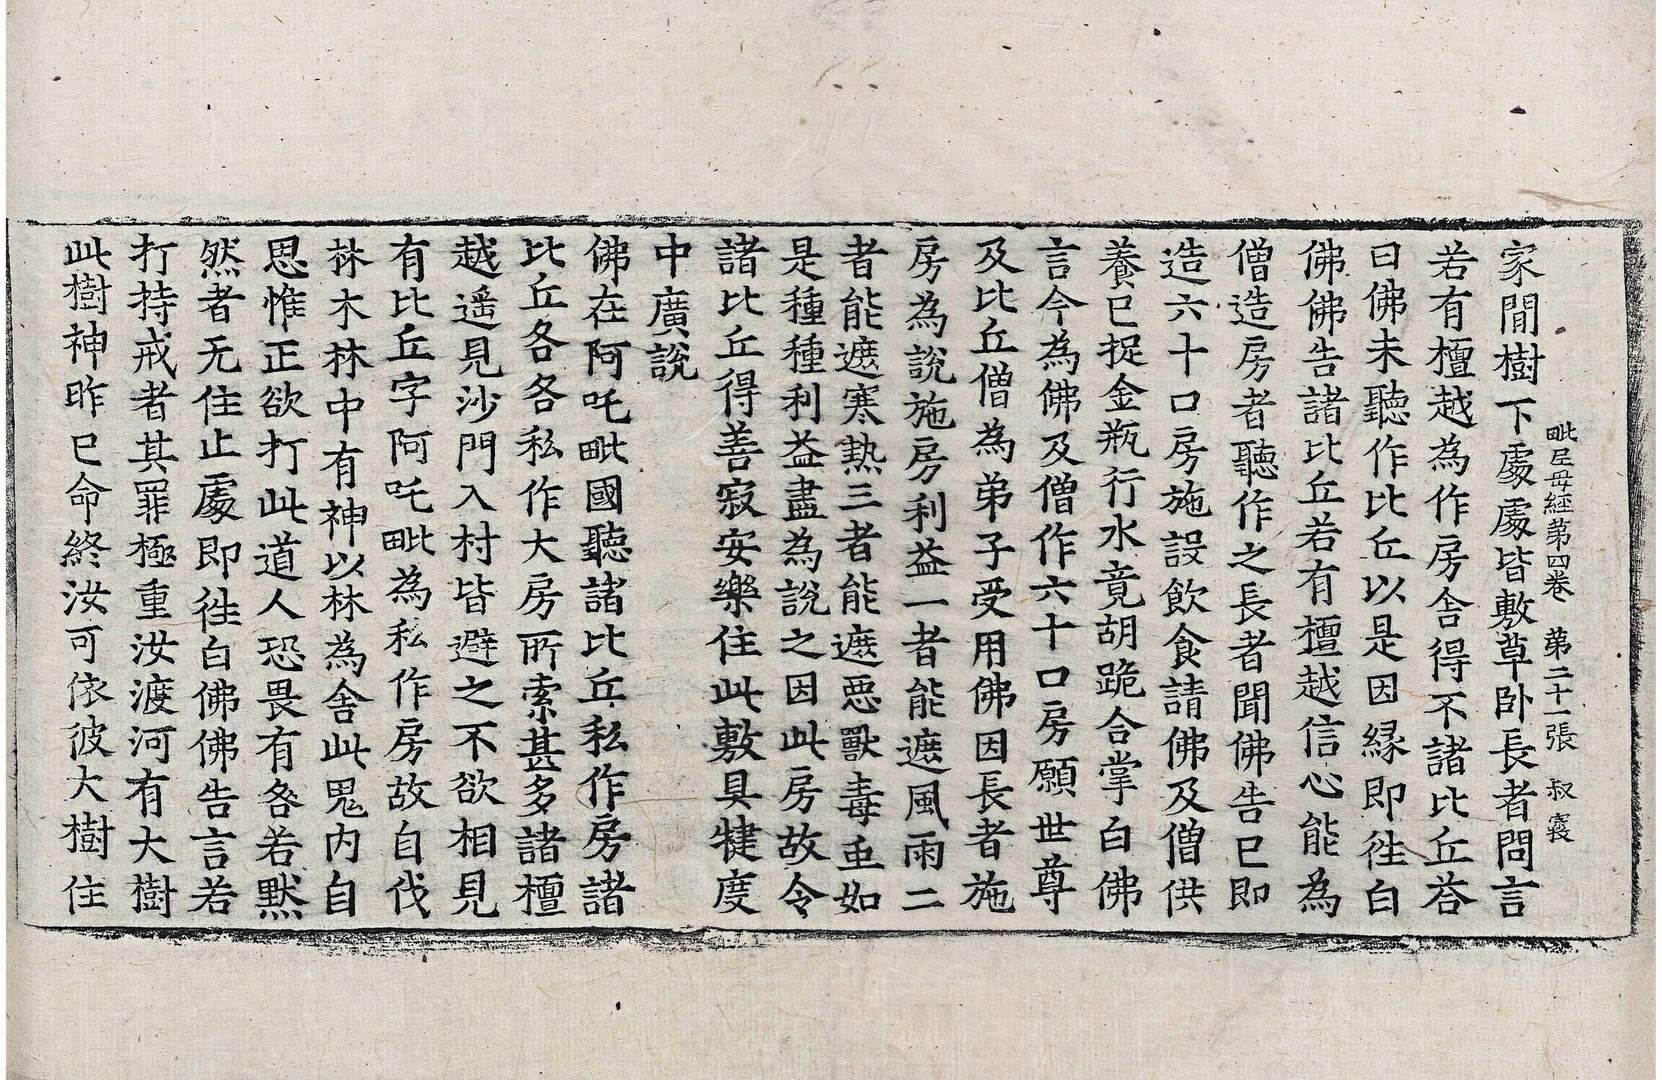 毗尼毋經第四卷 第二十一張 叔褱
家閒樹下處處皆敷草卧長者問言
若有檀越為作房舍得不諸比丘荅
曰佛未聽作比丘以是因縁即徃白
佛佛告諸比丘若有檀越信心能為
僧造房者聽作之長者聞佛告已即
造六十口房施設飲食請佛及僧供
養已捉金瓶行水竟胡跪合掌白佛
言今為佛及僧作六十口房願世尊
及比丘僧為弟子受用佛因長者施
房為說施房利益一者能遮風雨二
者能遮寒熱三者能遮惡獸毒虫如
是種種利益盡為說之因此房故令
諸比丘得善寂安樂住此敷具犍度
中廣說
佛在阿吒毗國聽諸比丘私作房諸
比丘各各私作大房所索甚多諸檀
越遥見沙門入村皆避之不欲相見
有比丘字阿吒毗為私作房故自伐
林木林中有神以林為舍此鬼内自
思惟正欲打此道人恐畏有咎若默
然者无住止處即徃白佛佛告言若
打持戒者其罪極重汝渡河有大樹
此樹神昨已命終汝可依彼大樹住